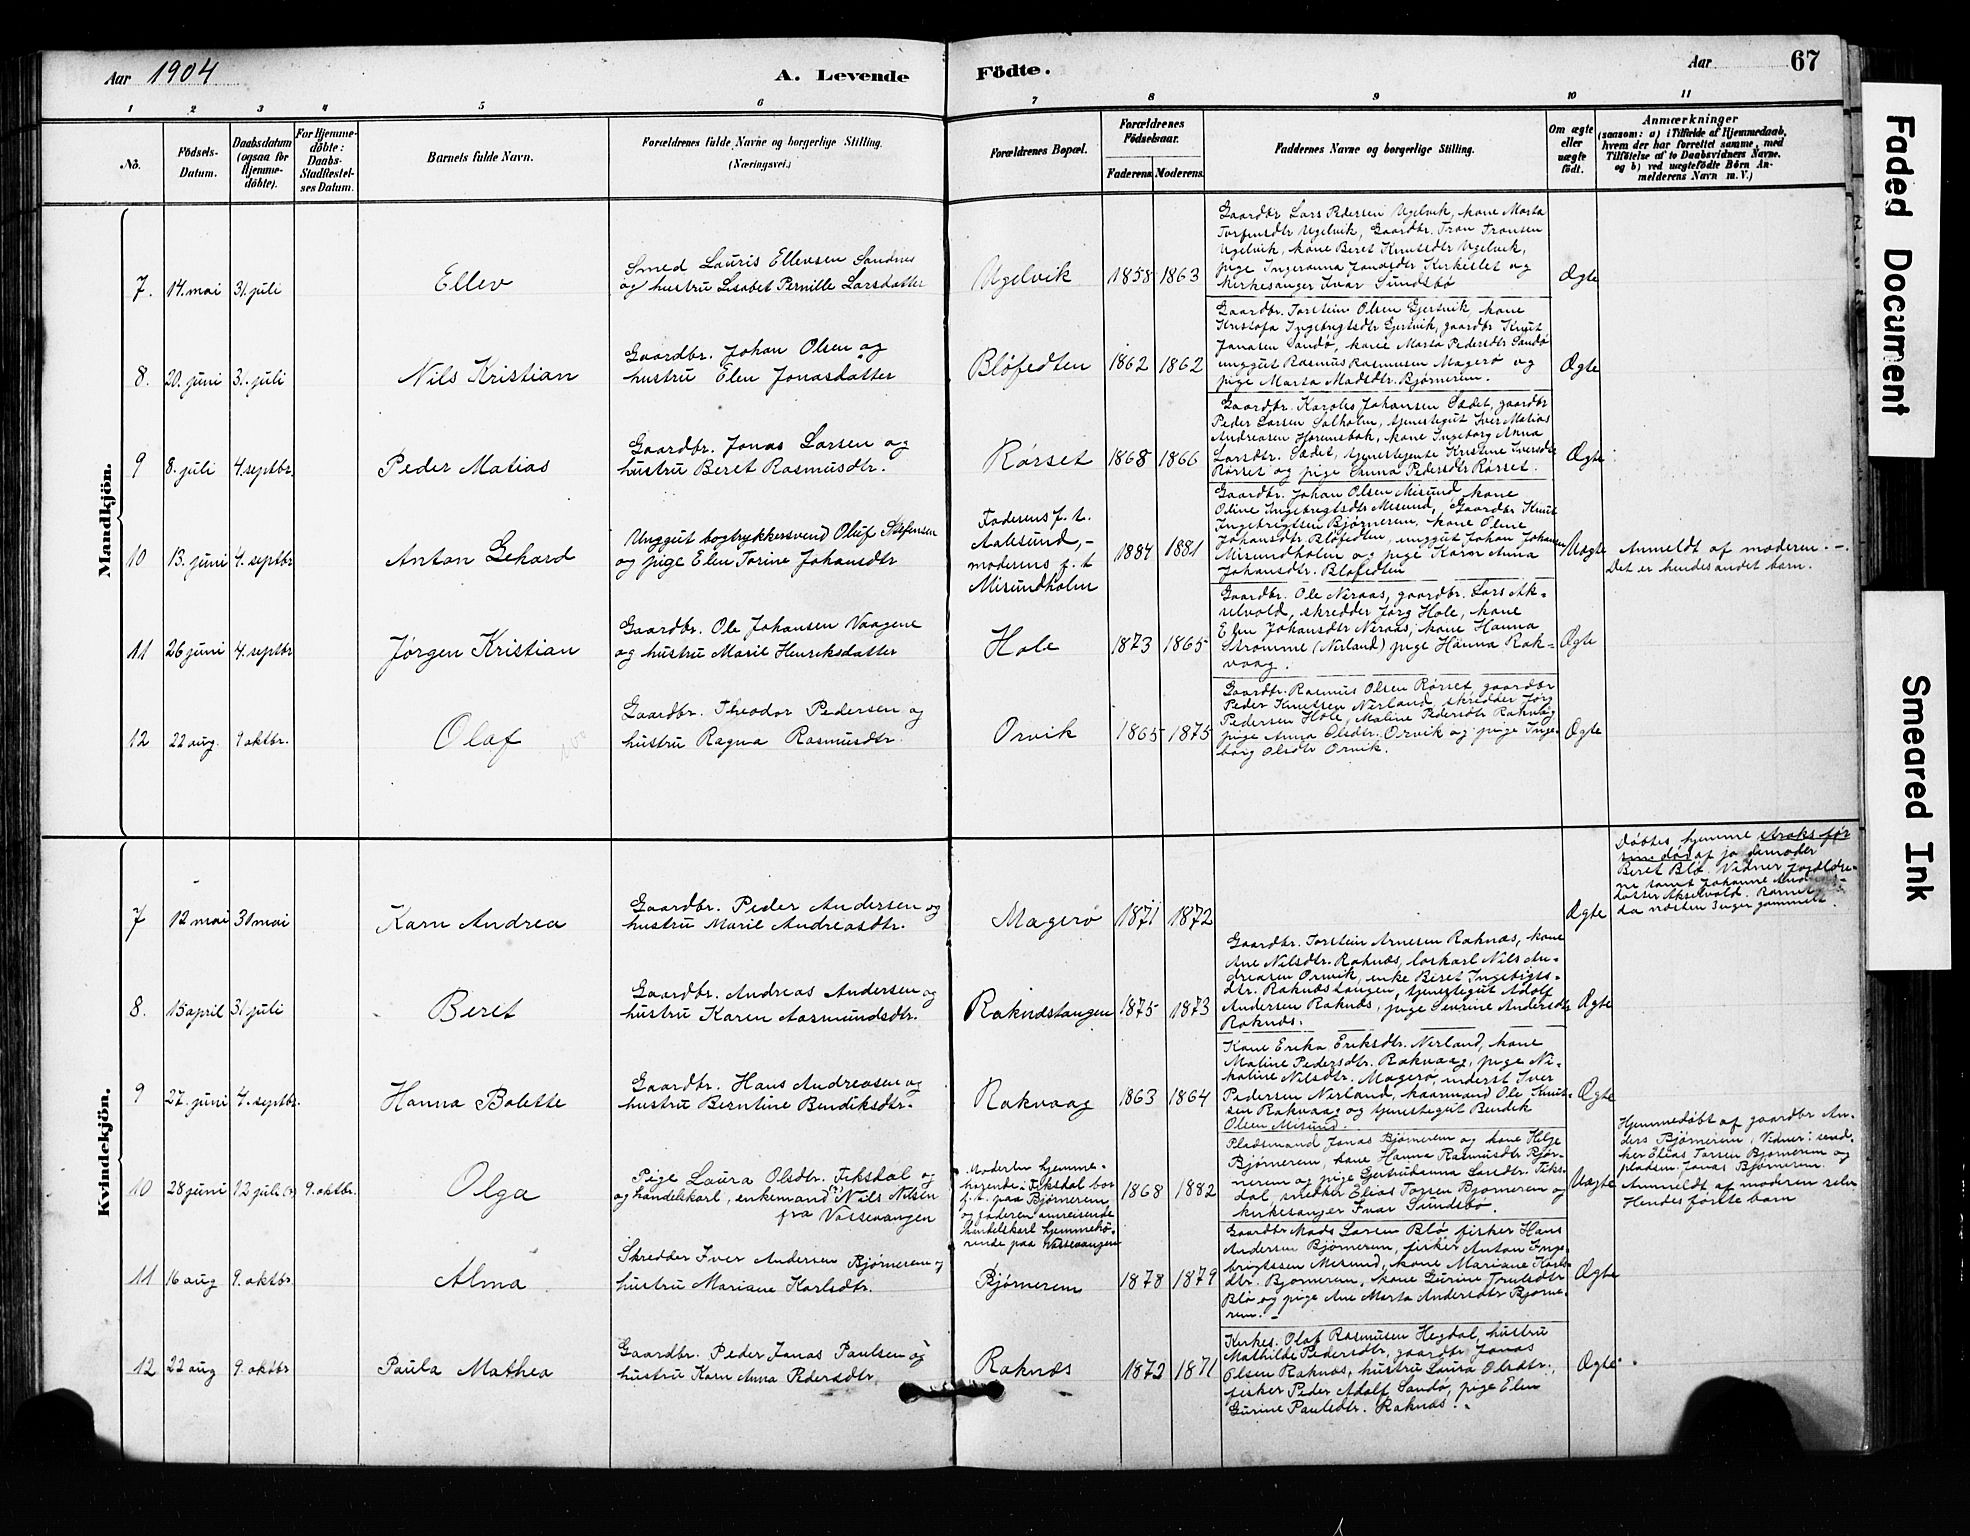 Aar 1904
A. Levende
Födte.
Aar
67
1 2 3 4 5 6 7 8 9 10 11
No.
Födsels-
Datum.
Daabsdatum
(ogsaa for
Hjemme-
döbte).
For Hjemme-
döbte:
Daabs-
Stadfæstel-
ses Datum.
Barnets fulde Navn.
Forældrenes fulde Navne og borgerlige Stilling.
(Næringsvei.)
Forældrenes Bopæl.
Forældrenes
Födselsaar.
Faderens. Moderens.
Faddernes Navne og borgerlige Stilling.
Om ægte
eller
uægte
födt.
Anmærkninger
(saasom: a) i Tilfælde af Hjemmedaab,
hvem der har forrettet samme, med
Tilföielse af to Daabsvidners Navne,
og b) ved uægtefödte Börn An-
melderens Navn m. V.)
Mandkjön.
7. 14. mai 31. juli
Ellev
Smed Lauris Ellevsen Sandnes
og hustru Lisabet Pernille Larsdatter
Ugelvik
1858 1863
Gaardbr. Lars Pedersen Ugelvik, kone Marta
Torfinsdtr Ugelvik, Gaardbr. Tron Tronsen
Ugelvik, kone Beret Knutsdtr Ugelvik,
pige Ingeranna Jonasdtr Kirkeslet og
kirkesanger Ivar Sundsbø
Ægte
8. 20. juni 3. juli
Nils Kristian
Gaardbr. Johan Olsen og
hustru Elen Jonasdatter
Bløfedten
1862 1862
Gaardbr. Torstein Olsen Gjertvik, kone
Kristofa Ingebregtsdtr Gjertvik, gaardbr Knut
Jonasen Sandø, kone Marta Pedersdtr Sandø
unggut Rasmus Rasmusen Magerø og
pige Marta Madsdtr. Bjørnerem.
Ægte
9 8. juli 4. septbr.
Peder Matias
Gaardbr. Jonas Larsen og
hustru Beret Rasmusdtr.
Rørset
1868 1866
Gaardbr. Karoles Johansen Sædet, gaardbr
Peder Larsen Solholm, tjenestegut Iver Matias
Andreasen Horsnesbak, kone Ingeborg Anna
Larsdtr. Sædet, tjenestejente Kristine Iversdtr
Rørset og pige Anna Pedersdtr Rørset.
Ægte
10 13. juni 4. septbr
Anton Gehard
Unggut bogtrykkersvend Oluf Steffensen
og pige Elen Torine Johansdtr
Faderens f. t.
Aalesund, -
moderens f. t
Misundholm
1884 1881
Gaardbr. Johan Olsen Misund, kone
Oline Ingebregtsdtr Misund, Gaardbr Knut
Ingebregtsen Bjørnerem, kone Oline
Johansdtr Bløfedten, unggut Johan Johansen
Misundholm og pige Karn Anna
Johansdtr. Bløfedten
Uægte
Anmeldt af moderen. -
Det er hendes andet barn.
11 26 juni 4. septbr
Jørgen Kristian
Gaardbr. Ole Johansen Vaagene
og hustru Marie Henriksdatter
Hole
1873 1865
Gaardbr. Ole Neraas, gaardbr. Lars Ak-
selvold, skredder Jørg Hole, kone
Elen Johansdtr Neraas, kone Hanna
Strømme (Nerland) pige Hanna Rak-
vaag.
Ægte
12 22 aug. 9 oktbr.
Olaf
Gaardbr. Theodor Pedersen og
hustru Ragna Rasmusdtr.
Orvik
1865 1875
Gaardbr. Rasmus Olsen Rørset, gaardbr
Peder Knutsen Nerland, skredder Jørg
Pedersen Hole, Maline Pedersdtr Rakvaag
pige Anna Olsdtr. Orvik og pige Inge-
borg Olsdtr Orvik.
Ægte
Kvindekjön.
7 12 mai 31 mai
Karn Andrea
Gaardbr. Peder Andersen og
hustru Marie Andreasdtr.
Magerø
1871 1872
Ægte
Døbtes hjemme straks før
sin død af jordemoder
Beret Blø. Vidner Forældre-
ne samt Johanne
datter Akselvold. Barnet
da næsten 3 uger gammelt.
8. 15 april 31 juli
Beret
Gaardbr. Andreas Andersen og
hustru Karen Aasmundsdtr.
Raknæstangen
1875 1873
Gaardbr. Torstein Arnesen Raknæs, kone
Ane Nilsdtr. Raknæs, løskarl Nils An-
dreasen Orvik, enke Beret Ingebrigts-
dtr. Raknæstangen, tjenestegut Adolf
Andersen Raknæs, pige Severine Andersdtr
Raknæs.
Ægte
9 27. juni 4. septbr.
Hanna Bolette
Gaardbr. Hans Andreasen og
hustru Berntine Bendiksdtr.
Rakvaag
1863 1864
Kone Erika Eriksdtr. Nerland, kone
Maline Pedersdtr. Rakvaag, pige Ni-
koline Nilsdtr. Magerø, inderst Iver
Pedersen Nerland, kaarmand Ole Knut-
sen Rakvaag og tjenestegut Bendik
Olsen Misund.
Ægte
10 28 juni 12 juli 9. oktbr.
Olga
Pige Laura Olsdtr. Fiksdal og
og handelskarl, enkemand Nils Nilsen
fra Vossevangen
Moderen hjemme-
hørende i Fiksdal bor
f. t. paa Bjørnerem
og faderen omreisende
handelskarl hjemmehø-
rende paa Vossevangen
1868 1882
Pladsmand Jonas Bjørnerem og kone Helge
Bjørnerem, kone Hanna Rasmusdtr Bjør-
nerem og pige Gjertrudanna Larsdtr. Fiks-
dal, snedker Elias Torsen Bjørnerem og
kirkesanger Ivar Sundsbø.
Uægte
Hjemmedøbt af gaardbr An-
ders Bjørnerem. Vidner: sned-
ker Elias Torsen Bjørnerem og
pladsm. Jonas Bjørnerem.
Anmeldt af moderen selv.
Hendes første barn
11 16 aug 9. oktbr
Alma
Skredder Iver Andersen Bjørnerem og
hustru Mariane Karlsdtr.
Bjørnerem
1878 1879
Gaardbr Mads Larsen Blø, fisker Hans
Andersen Bjørnerem, fisker Anton Inge-
brigtsen Misund, kone Mariane Karls-
dtr. Bjørnerem, kone Gurine Tronsdtr
Blø og pige Ane Marta Andersdtr Bjørne-
rem. -
Ægte
12 22 aug 9. oktbr
Paula Mathea
Gaardbr. Peder Jonas Paulsen og
hustru Karn Anna Pedersdtr.
Raknæs
1872 1871
Kirkes. Olaf Rasmusen Hegdal, hustru
Mathilde Pedersdtr, gaardbr Jonas
Olsen Raknæs, hustru Laura Olsdtr.,
fisker Peder Adolf Sandø, pige Elen
Gurine Paulsdtr. Raknæs.
Ægte
Faded Document
Smeared Ink